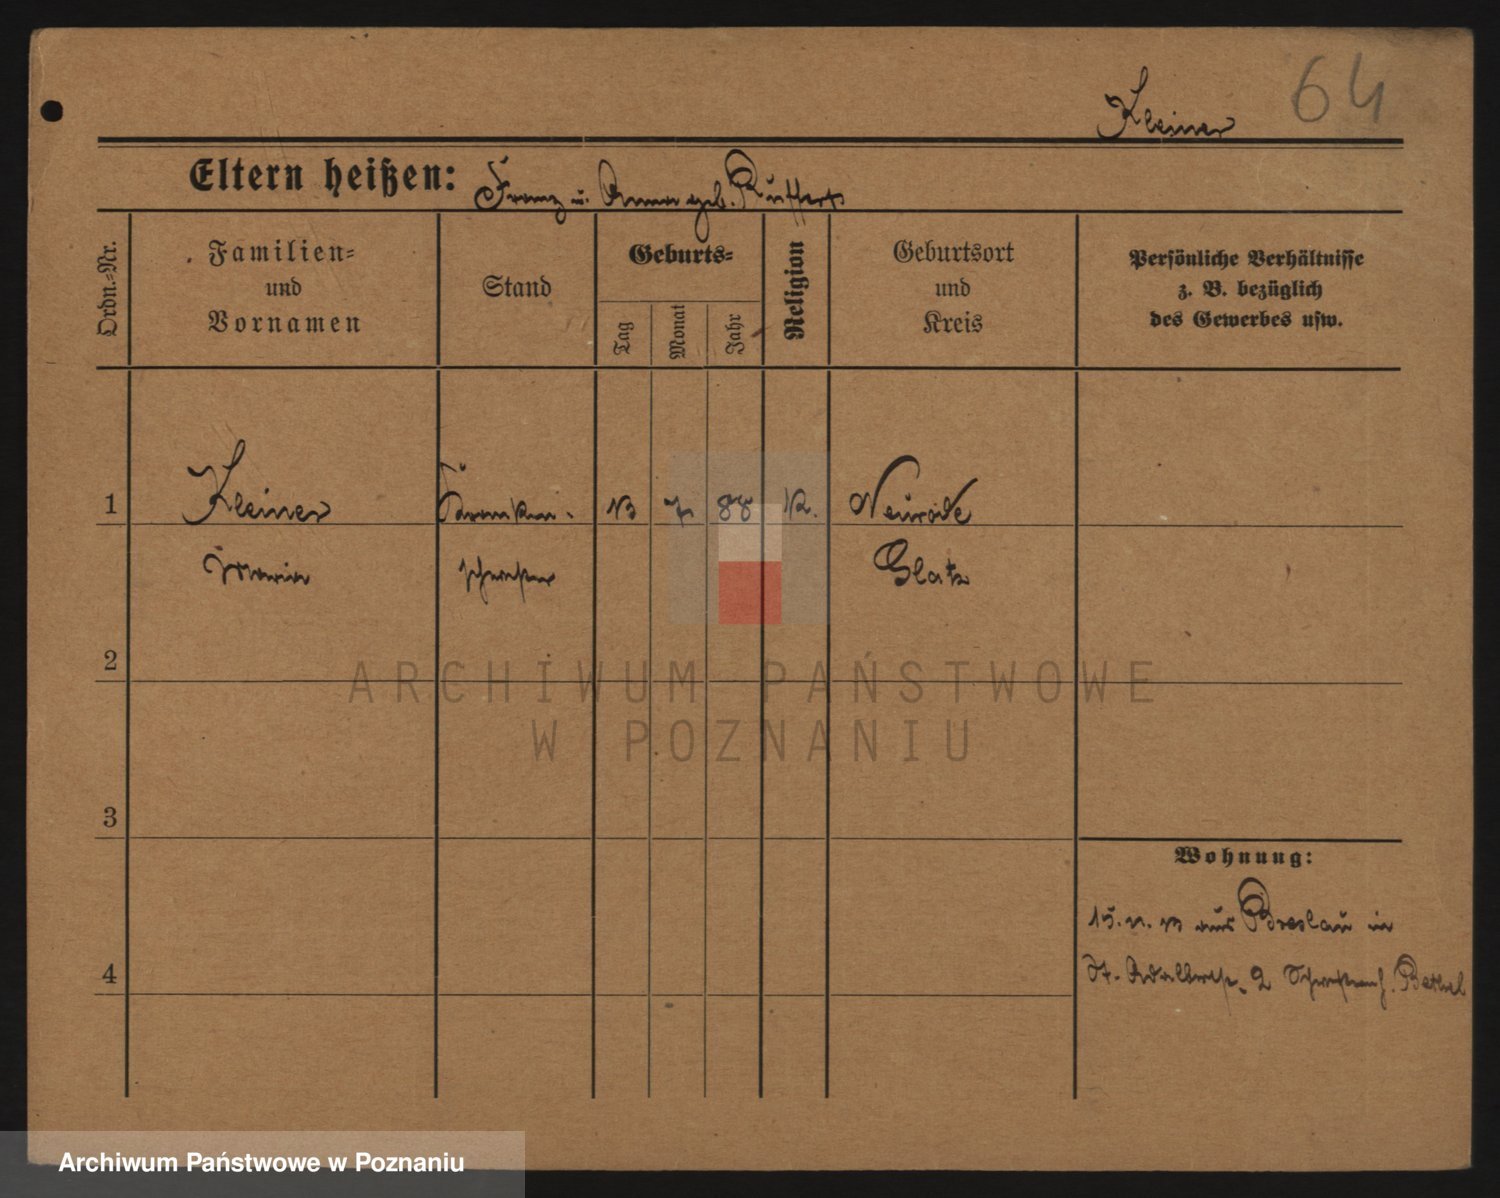 64
Kleiner
Eltern heißen: Franz u. Anna geb. Ruffert
Ordn.=Nr.
Familien=
und
Vornamen
Stand
Geburts=
Tag
Monat
Jahr
Religion
Geburtsort
und
Kreis
Persönliche Verhältnisse
z. B. bezüglich
des Gewerbes usw.
1 Kleiner Kranken- 13 7 88 K. Neurode
Maria schwester Glatz
2
ARCHIWUM PAŃSTWOWE
W POZNANIU
3
Wohnung:
15. 11. 13 aus Breslau in
4 St. Adalbertstr. 2 Schwesternh. Bethel
Archiwum Państwowe w Poznaniu